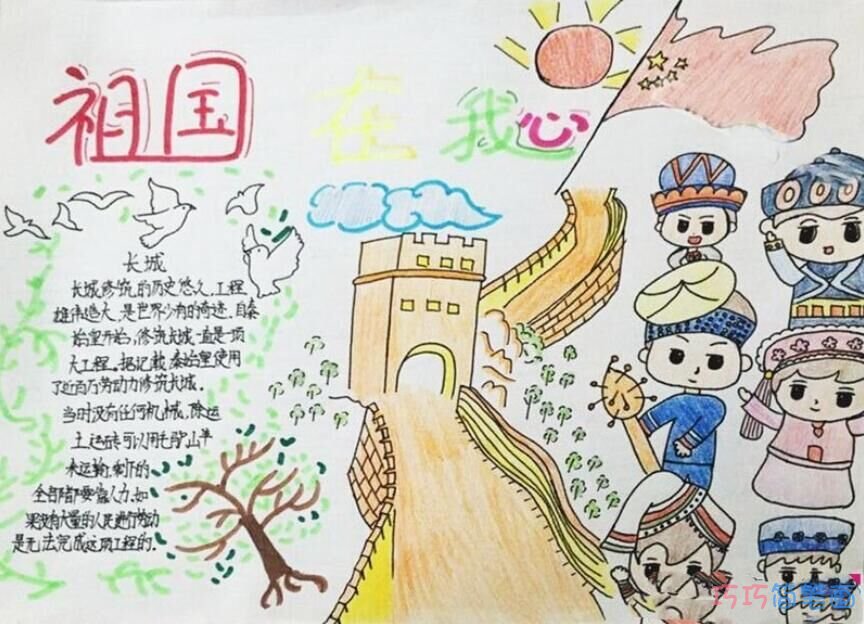 祖国在我心
长城
长城修筑的历史悠久,工程
雄伟浩大,是世界少有的奇迹.自秦
始皇开始,修筑长城一直是一项
大工程.据记载,秦始皇使用
了近百万劳动力修筑长城.
当时没有任何机械,除运
土运砖可以用毛驴山羊
来运输,剩下的
全部都要靠人力,如
果没有大量的人民进行劳动
是无法完成这项工程的.
巧巧简笔画